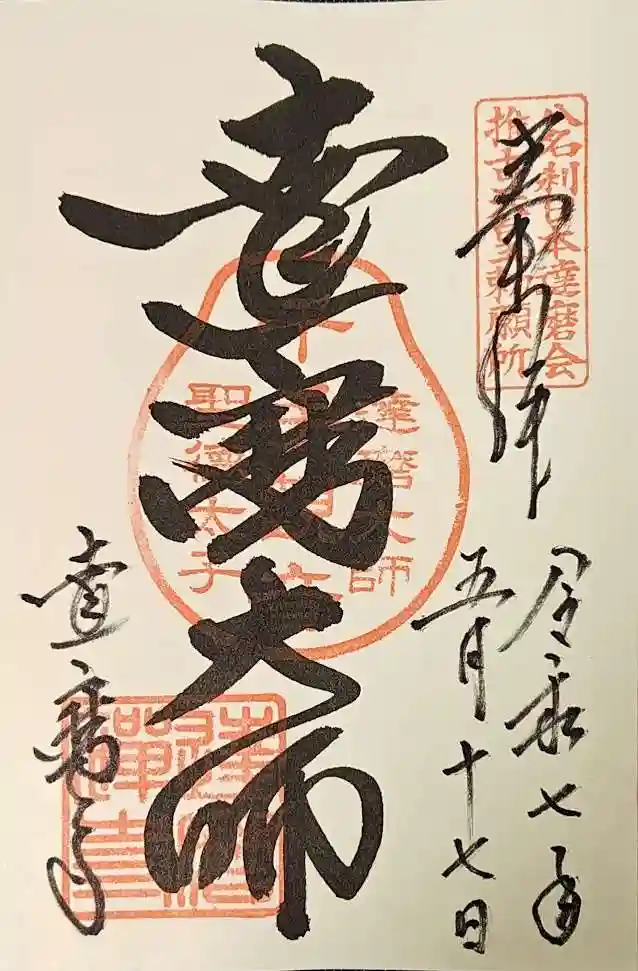 奉拝
令和七年
五月十七日
達磨大師
達磨寺
名刹日本達磨会
推古
勅願所
達磨大師
聖徳太子
達磨
禅寺